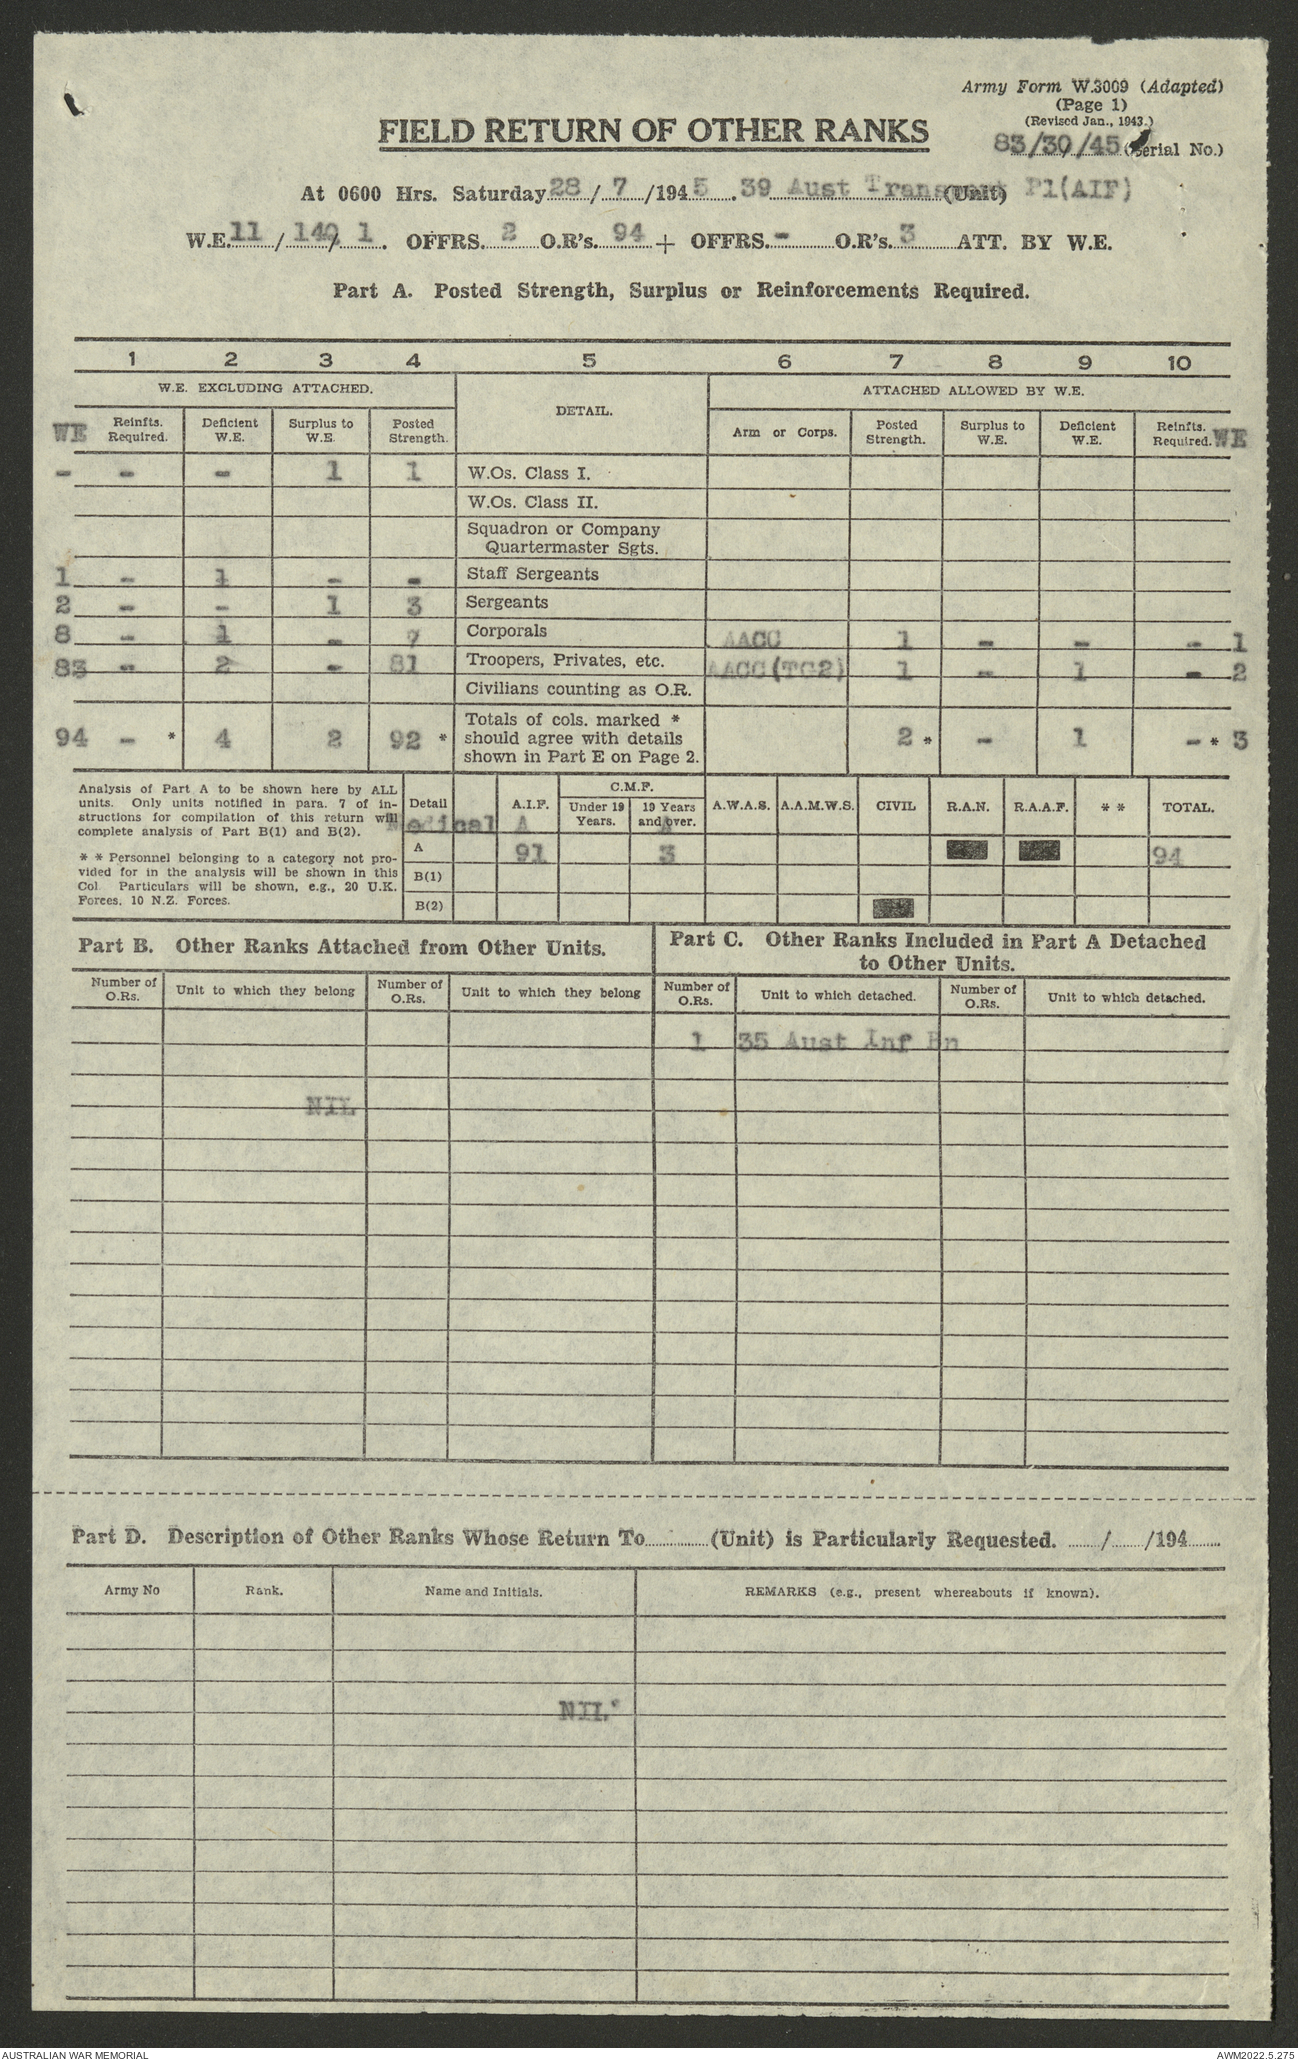 Army Form W.3009 (Adapted)
(Page 1)
(Revised Jan., 1943.)
FIELD RETURN OF OTHER RANKS
83/30/45 (Serial No.)
At 0600 Hrs. Saturday 28 / 7 /1945. 39 Aust Transport Pl(AIF) (Unit)
W.E. 11 / 140/ 1 . OFFRS. 2 O.R's. 94 + OFFRS. - O.R's. 3 ATT. BY W.E.
Part A. Posted Strength, Surplus or Reinforcements Required.
1 2 3 4 5 6 7 8 9 10
W.E. EXCLUDING ATTACHED. DETAIL. ATTACHED ALLOWED BY W.E.
WE Reinfts. Required. Deficient W.E. Surplus to W.E. Posted Strength. Arm or Corps. Posted Strength. Surplus to W.E. Deficient W.E. Reinfts. Required. WE
- - - 1 1 W.Os. Class I.
W.Os. Class II.
Squadron or Company
Quartermaster Sgts.
1 - 1 - - Staff Sergeants
2 - - 1 3 Sergeants
8 - 1 - 7 Corporals AACC 1 - - - 1
83 - 2 - 81 Troopers, Privates, etc. AACC(TG2) 1 - 1 - 2
Civilians counting as O.R.
94 - * 4 2 92 * Totals of cols. marked * should agree with details shown in Part E on Page 2. 2 * - 1 - * 3
Analysis of Part A to be shown here by ALL
units. Only units notified in para. 7 of in-
structions for compilation of this return will
complete analysis of Part B(1) and B(2).
* * Personnel belonging to a category not pro-
vided for in the analysis will be shown in this
Col. Particulars will be shown, e.g., 20 U.K.
Forces, 10 N.Z. Forces.
Detail A.I.F. C.M.F. Under 19 Years. 19 Years and over. A.W.A.S. A.A.M.W.S. CIVIL R.A.N. R.A.A.F. * * TOTAL.
Medical A A
A 91 3 94
B(1)
B(2)
Part B. Other Ranks Attached from Other Units.
Part C. Other Ranks Included in Part A Detached
to Other Units.
Number of O.Rs. Unit to which they belong Number of O.Rs. Unit to which they belong Number of O.Rs. Unit to which detached. Number of O.Rs. Unit to which detached.
1 35 Aust Inf Bn
NIL
Part D. Description of Other Ranks Whose Return To............(Unit) is Particularly Requested. ....../....../194......
Army No Rank. Name and Initials. REMARKS (e.g., present whereabouts if known).
NIL.
AUSTRALIAN WAR MEMORIAL AWM2022.5.275